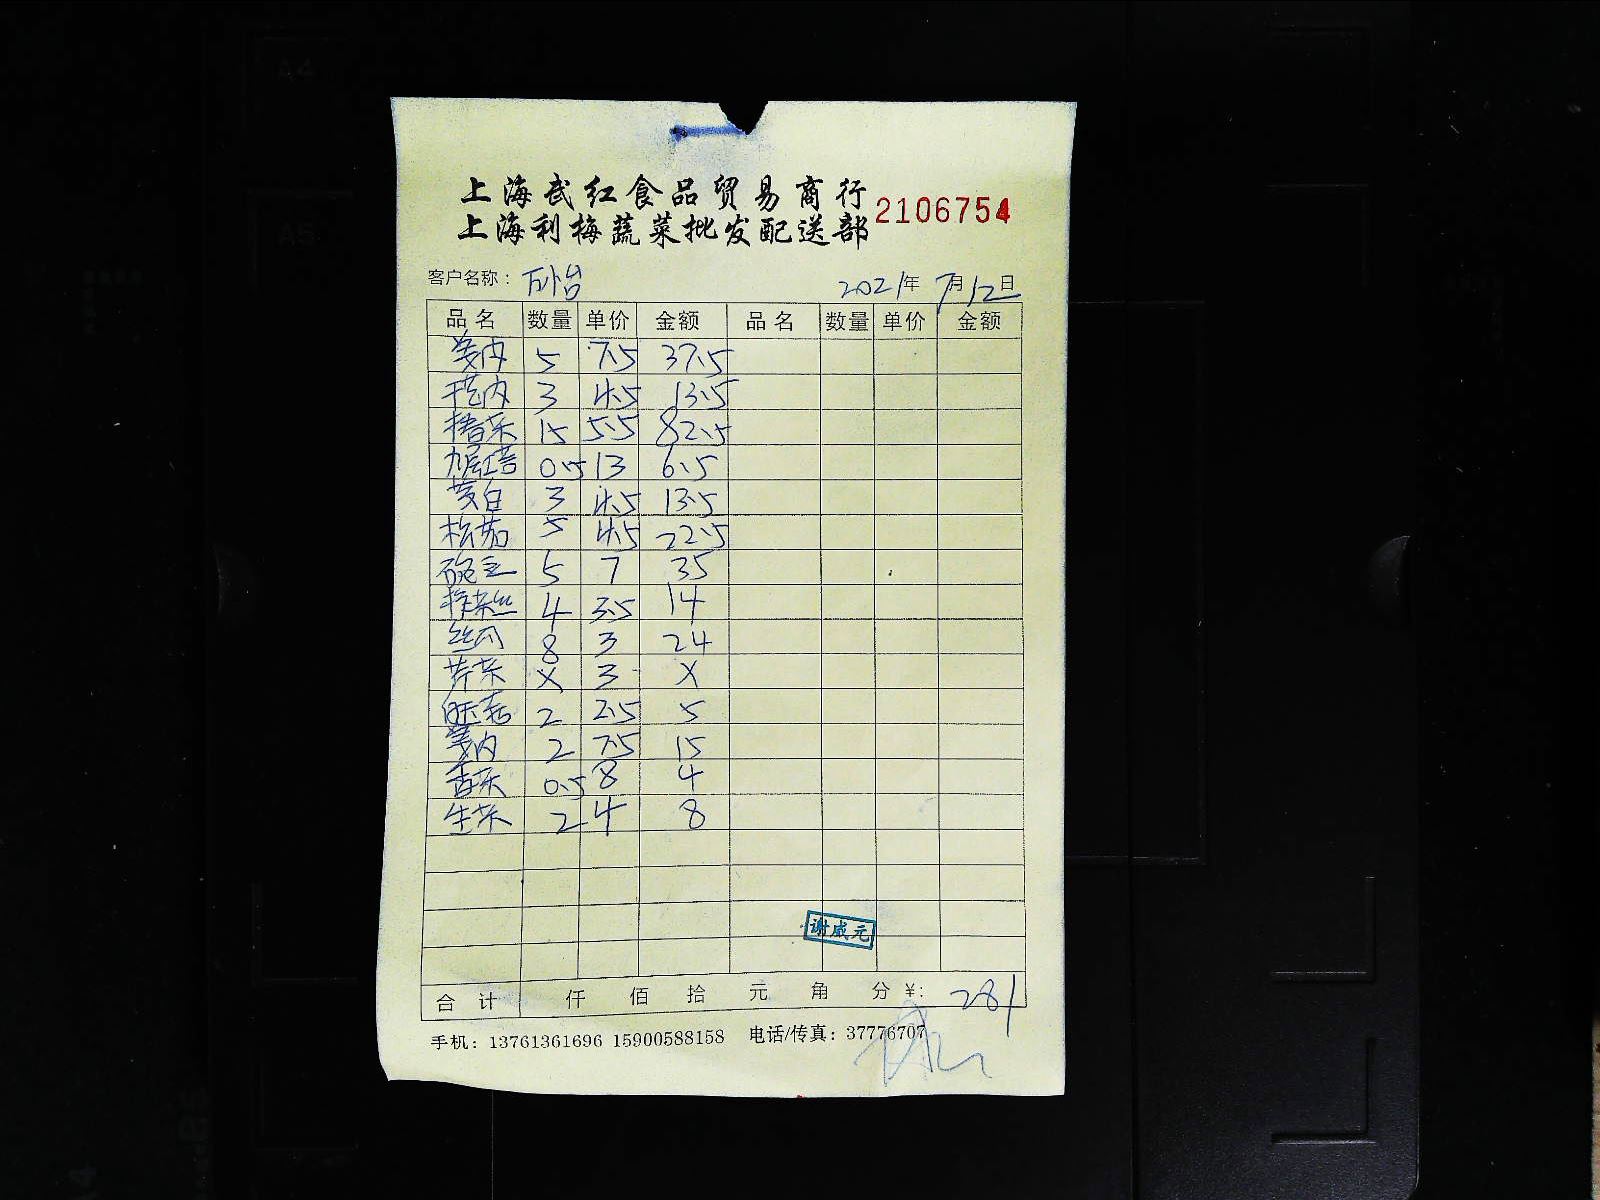 上海武红食品贸易商行
上海利梅蔬菜批发配送部 2106754
客户名称： 2021年 7月12日
品名 数量 单价 金额 品名 数量 单价 金额
5 7.5 37.5
3 4.5 13.5
15 5.5 82.5
0.5 13 6.5
茭白 3 4.5 13.5
5 4.5 22.5
5 7 35
榨菜丝 4 3.5 14
丝瓜 8 3 24
芹菜 X 3 X
2 2.5 5
2 7.5 15
香菜 0.5 8 4
生菜 2 4 8
谢威元
合计 仟 佰 拾 元 角 分 ¥: 281
手机：13761361696 15900588158 电话/传真：37776707